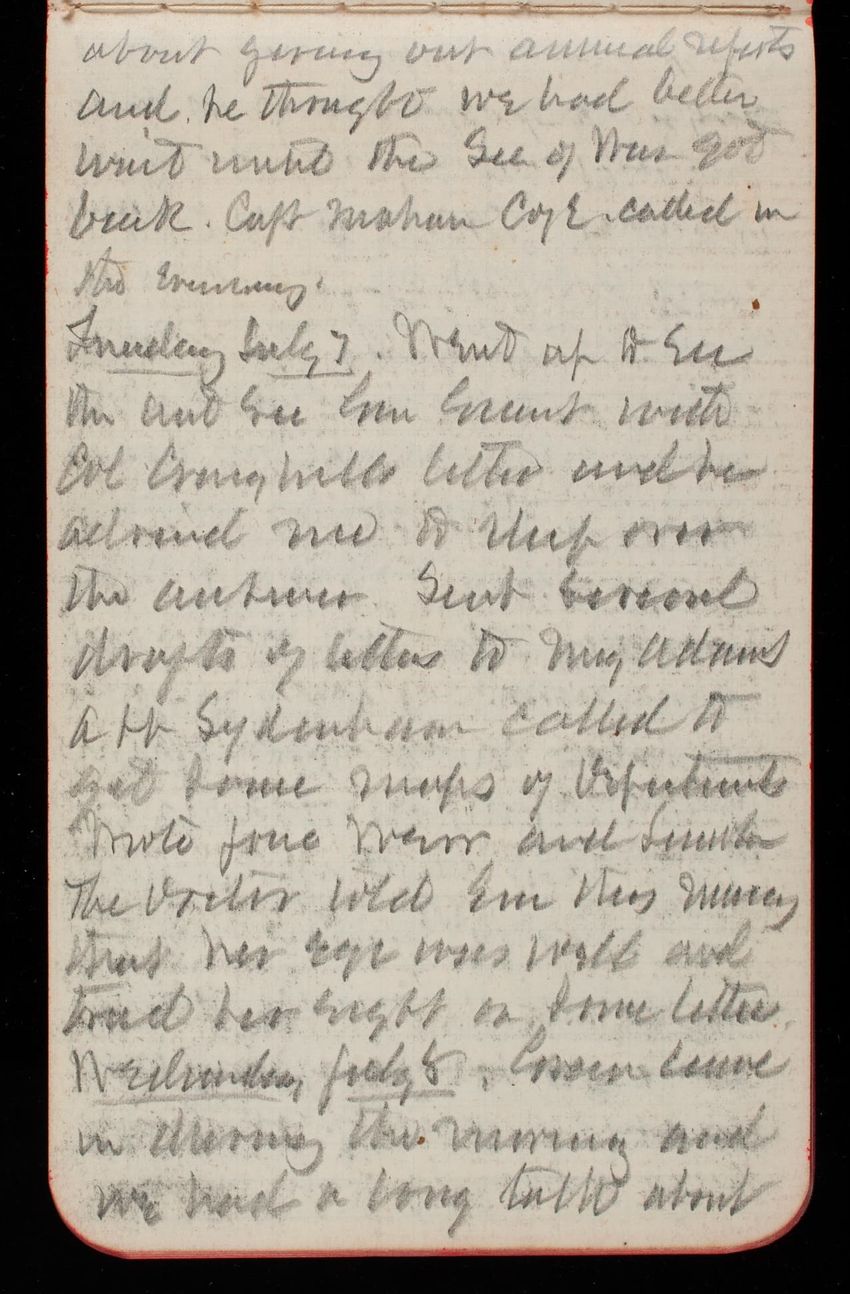 about giving out annual reports
and he thought we had better
wait until the Sec of War got
back. Capt Mahan C of E. called in
the evening.
Tuesday July 7. Went up to see
the and see Gen Grant with
Col Craighills letter and he
advised me to sleep over
the answer. Sent several
drafts of letters to Maj Adams
Sydenham called to
get some maps of
Wrote and
The Doctor told Em this morning
that her eye was well and
tried her sight on some letters.
Wednesday July 8. Green came
in during the morning and
we had a long talk about